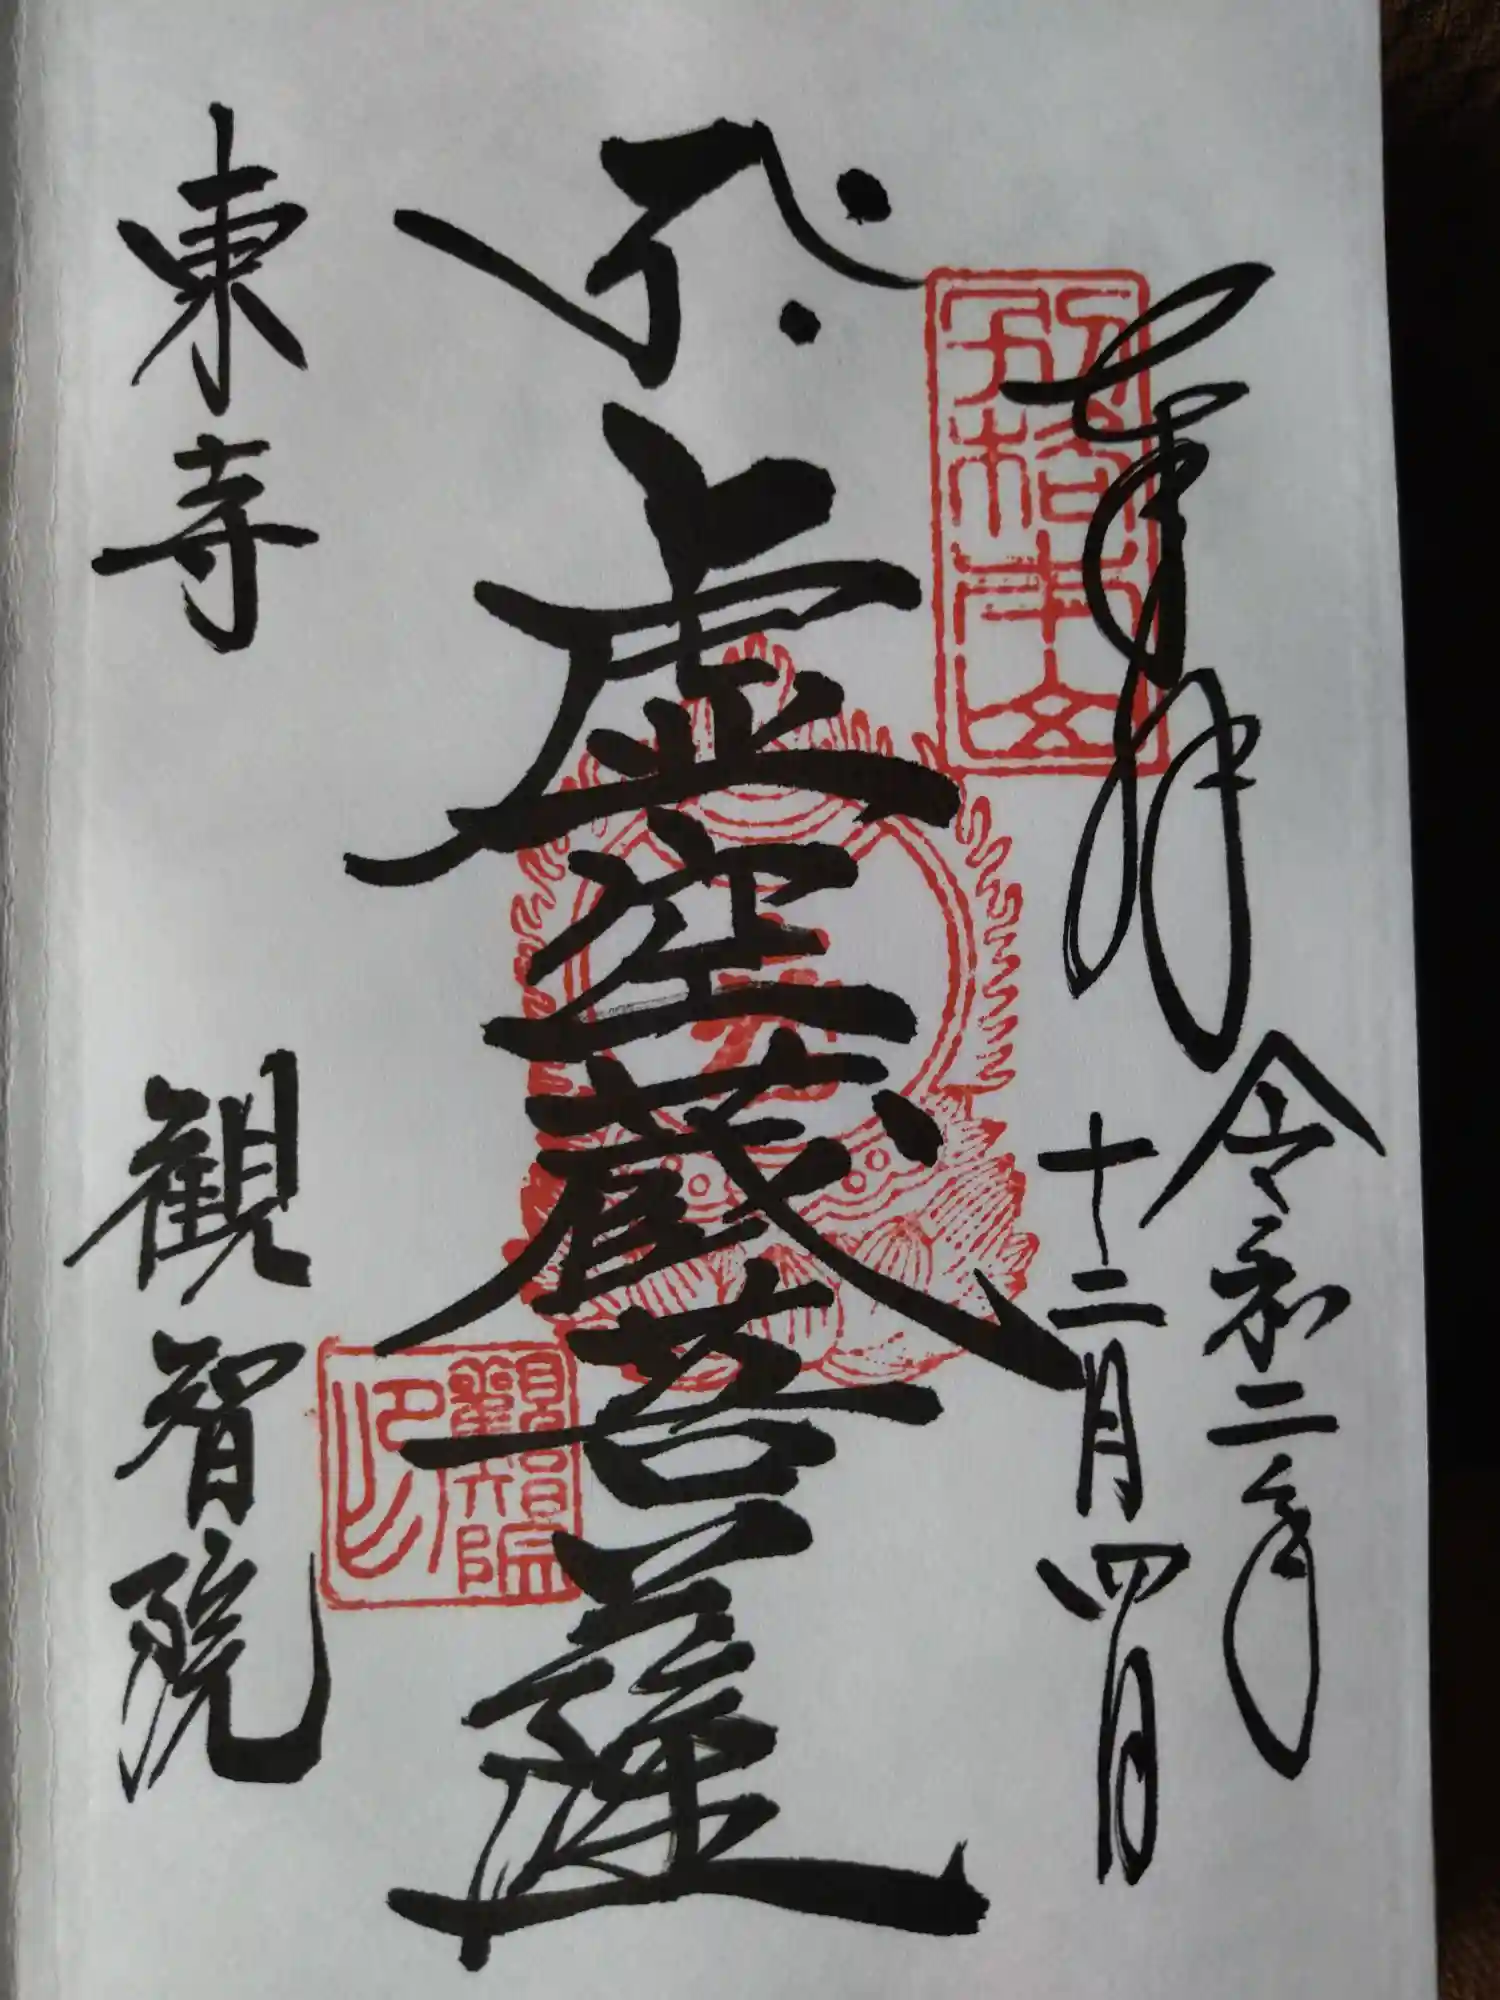 奉拝
令和二年
十二月四日
別格本山
虚空蔵菩薩
観智院印
東寺
観智院